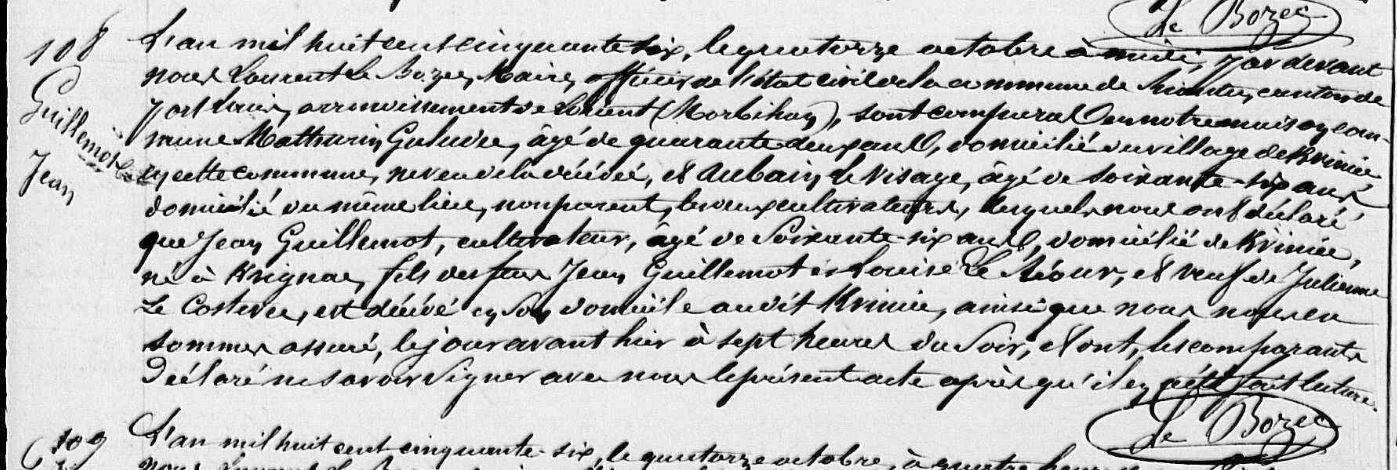 Le Bozec
108
Guillemot
Jean
L'an mil huit cent cinquante six, le quatorze octobre à midi, par devant
nous Laurent Le Bozec, Maire, officier de l'état civil de la commune de canton de
arrondissement de Lorient (Morbihan), sont comparus en notre maison com-
mune Mathurin âgé de quarante deux ans, domicilié du village de Krinuie
en cette commune, neveu de la décédée, et Aubain Le Visage, âgé de soixante-six ans
domicilié du même lieu, non parent, les deux cultivateurs, lesquels nous ont déclaré
que Jean Guillemot, cultivateur, âgé de soixante-six ans, domicilié de Krinuie,
né à Krignac, fils des feux Jean Guillemot et Louise Le et veuf de Julienne
Le est décédé en son domicile audit Krinuie, ainsi que nous nous en
sommes assuré, le jour avant hier à sept heures du soir, et ont, les comparants
déclaré ne savoir signer avec nous le présent acte après qu'il en a été fait lecture.
Le Bozec
109
L'an mil huit cent cinquante-six, le quatorze octobre, à quatre heures